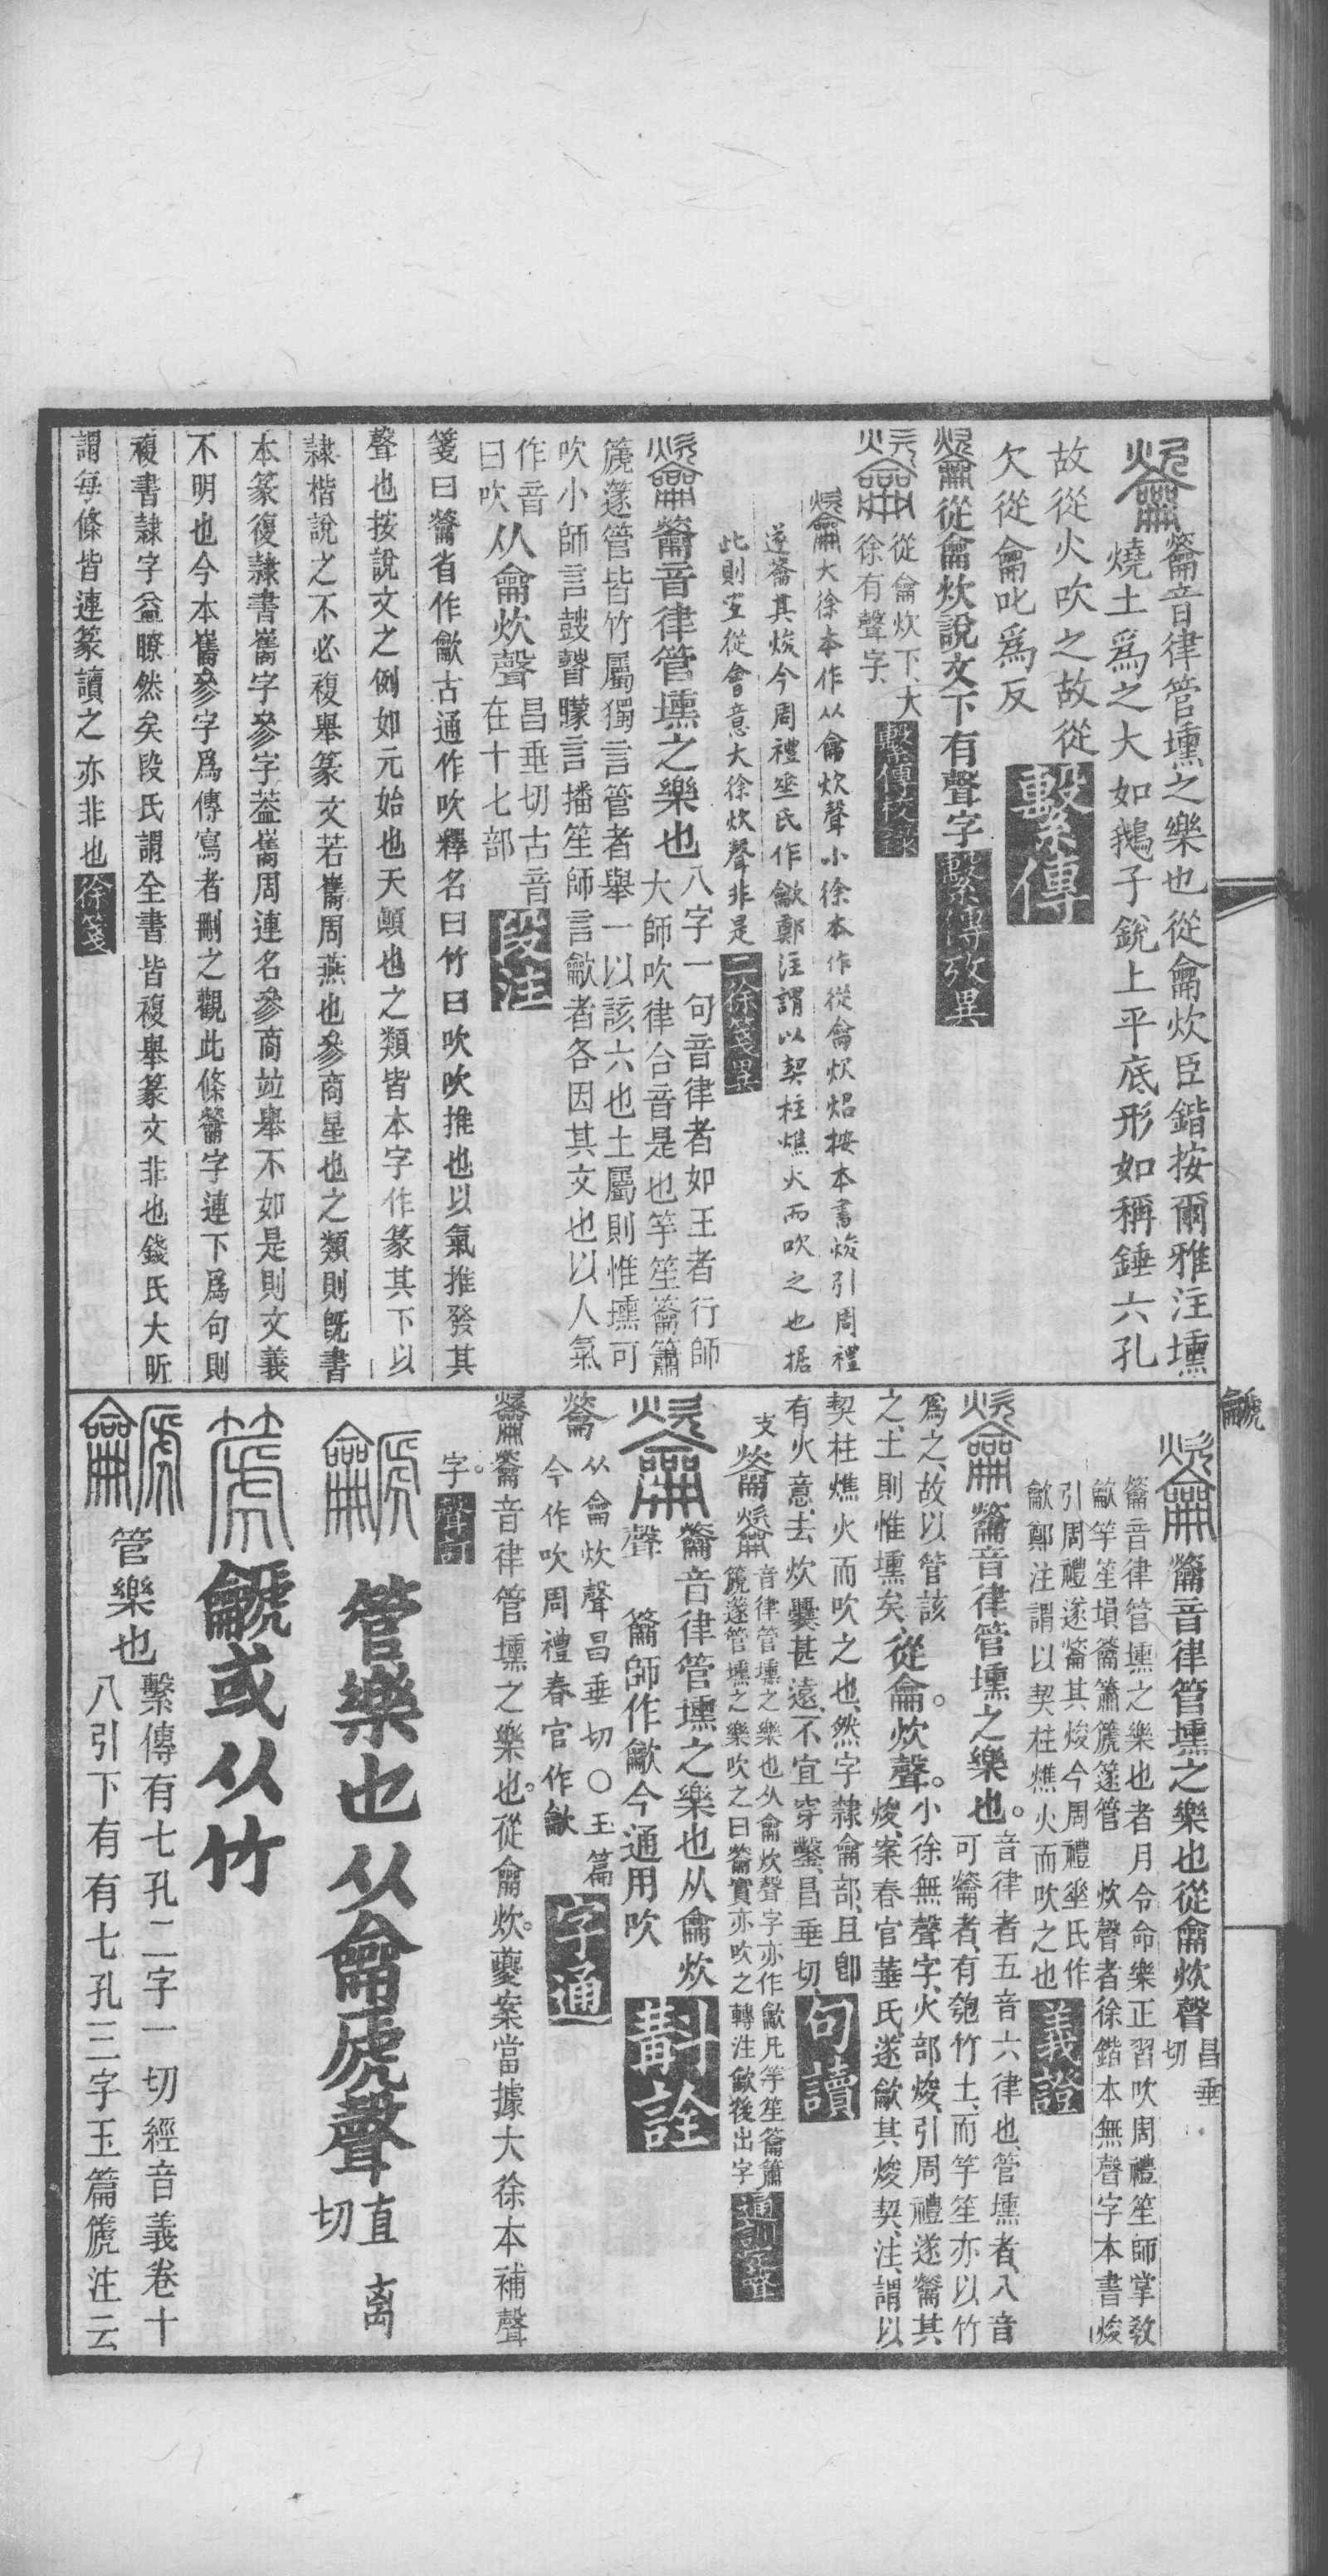 䶴音律管壎之樂也從龠炊臣鍇按爾雅注壎
燒土爲之大如鵝子銳上平底形如稱錘六孔
故從火吹之故從
欠從龠叱爲反
繫傳
從龠炊說文下有聲字
繫傳攷異
從龠炊下大
徐有聲字
繫傳校錄
大徐本作从龠炊聲小徐本作從龠炊炤按本書焌引周禮
遂䶴其焌今周禮華氏作龡鄭注謂以契柱燋火而吹之也據
此則宜從會意大徐炊聲非是
二徐箋異
䶴音律管壎之樂也
八字一句音律者如王者行師
大師吹律合音是也竽笙籥簫
篪篴管皆竹屬獨言管者舉一以該六也土屬則惟壎可
吹小師言鼓瞽矇言播笙師言龡者各因其文也以人氣
作音
曰吹
从龠炊聲
昌垂切古音
在十七部
段注
箋曰䶴省作龡古通作吹釋名曰竹曰吹吹推也以氣推發其
聲也按說文之例如元始也天顚也之類皆本字作篆其下以
隸楷說之不必複舉篆文若巂周燕也參商星也之類則旣書
本篆復隸書巂字參字葢巂周連名參商竝舉不如是則文義
不明也今本巂參字爲傳寫者刪之觀此條䶴字連下爲句則
複書隸字益瞭然矣段氏謂全書皆複舉篆文非也錢氏大昕
謂每條皆連篆讀之亦非也
徐箋
䶵
䶴音律管壎之樂也從龠炊聲
昌垂
切
䶴音律管壎之樂也者月令命樂正習吹周禮笙師掌敎
龡竽笙塤籥簫篪篴管 炊聲者徐鍇本無聲字本書焌
引周禮遂䶴其焌今周禮華氏作
龡鄭注謂以契柱燋火而吹之也
義證
䶴音律管壎之樂也。
音律者五音六律也、管壎者、八音
可䶴者、有匏竹土、而竽笙亦以竹
爲之、故以管該
之、土則惟壎矣、
從龠。炊聲。
小徐無聲字、火部焌、引周禮遂䶴其
焌、案春官華氏、遂龡其焌契、注、謂以
契柱燋火而吹之也、然字隸龠部、且卽
有火意、去炊爨甚遠、不宜穿鑿、昌垂切、
句讀
支
音律管壎之樂也从龠炊聲字亦作龡凡竽笙籥簫
篪篴管壎之樂吹之曰䶴實亦吹之轉注龡後出字
通訓定聲
䶴音律管壎之樂也从龠炊
聲 籥師作龡今通用吹
斠詮
䶴
从龠炊聲昌垂切〇玉篇
今作吹周禮春官作龡
字通
䶴音律管壎之樂也。從龠炊。夔案當據大徐本補聲
字。
聲訂
管樂也从龠虒聲直离切
䶵或从竹
管樂也
繫傳有七孔二字一切經音義卷十
八引下有有七孔三字玉篇篪注云